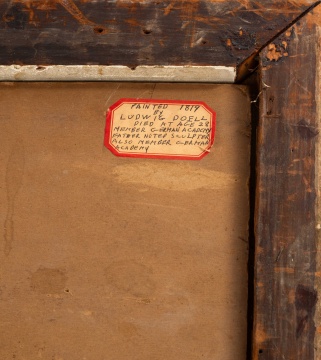 PAINTED 1819
BY
LUDWIG DOELL
DIED AT AGE 28
MEMBER GERMAN ACADEMY
FATHER NOTED SCULPTER
ALSO MEMBER GERMAN
ACADEMY